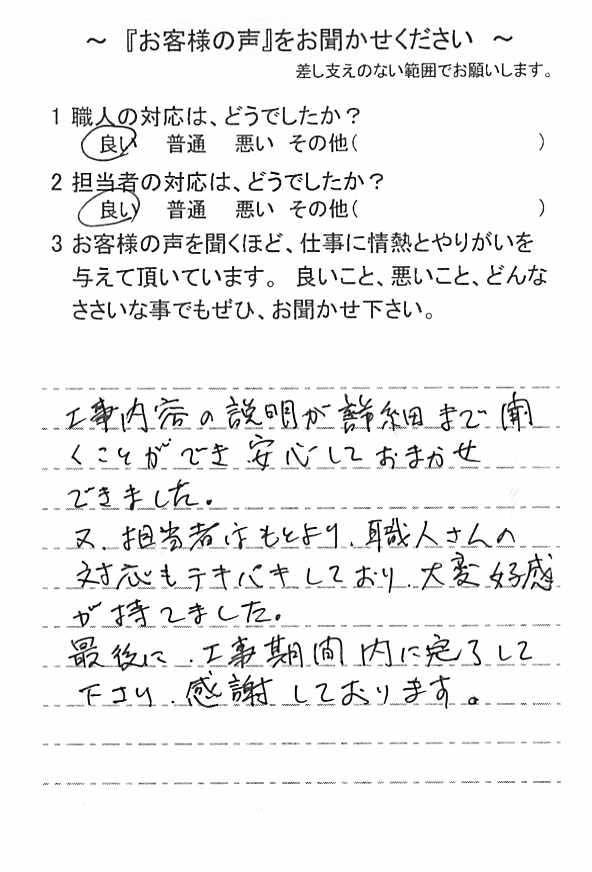 ～ 『お客様の声』をお聞かせください ～
差し支えのない範囲でお願いします。
1 職人の対応は、どうでしたか？
良い 普通 悪い その他( )
2 担当者の対応は、どうでしたか？
良い 普通 悪い その他( )
3 お客様の声を聞くほど、仕事に情熱とやりがいを
与えて頂いています。 良いこと、悪いこと、どんな
ささいな事でもぜひ、お聞かせ下さい。
工事内容の説明が詳細まで聞
くことができ安心しておまかせ
できました。
又、担当者はもとより、職人さんの
対応もテキパキしており、大変好感
が持てました。
最後に、工事期間内に完了して
下さり、感謝しております。